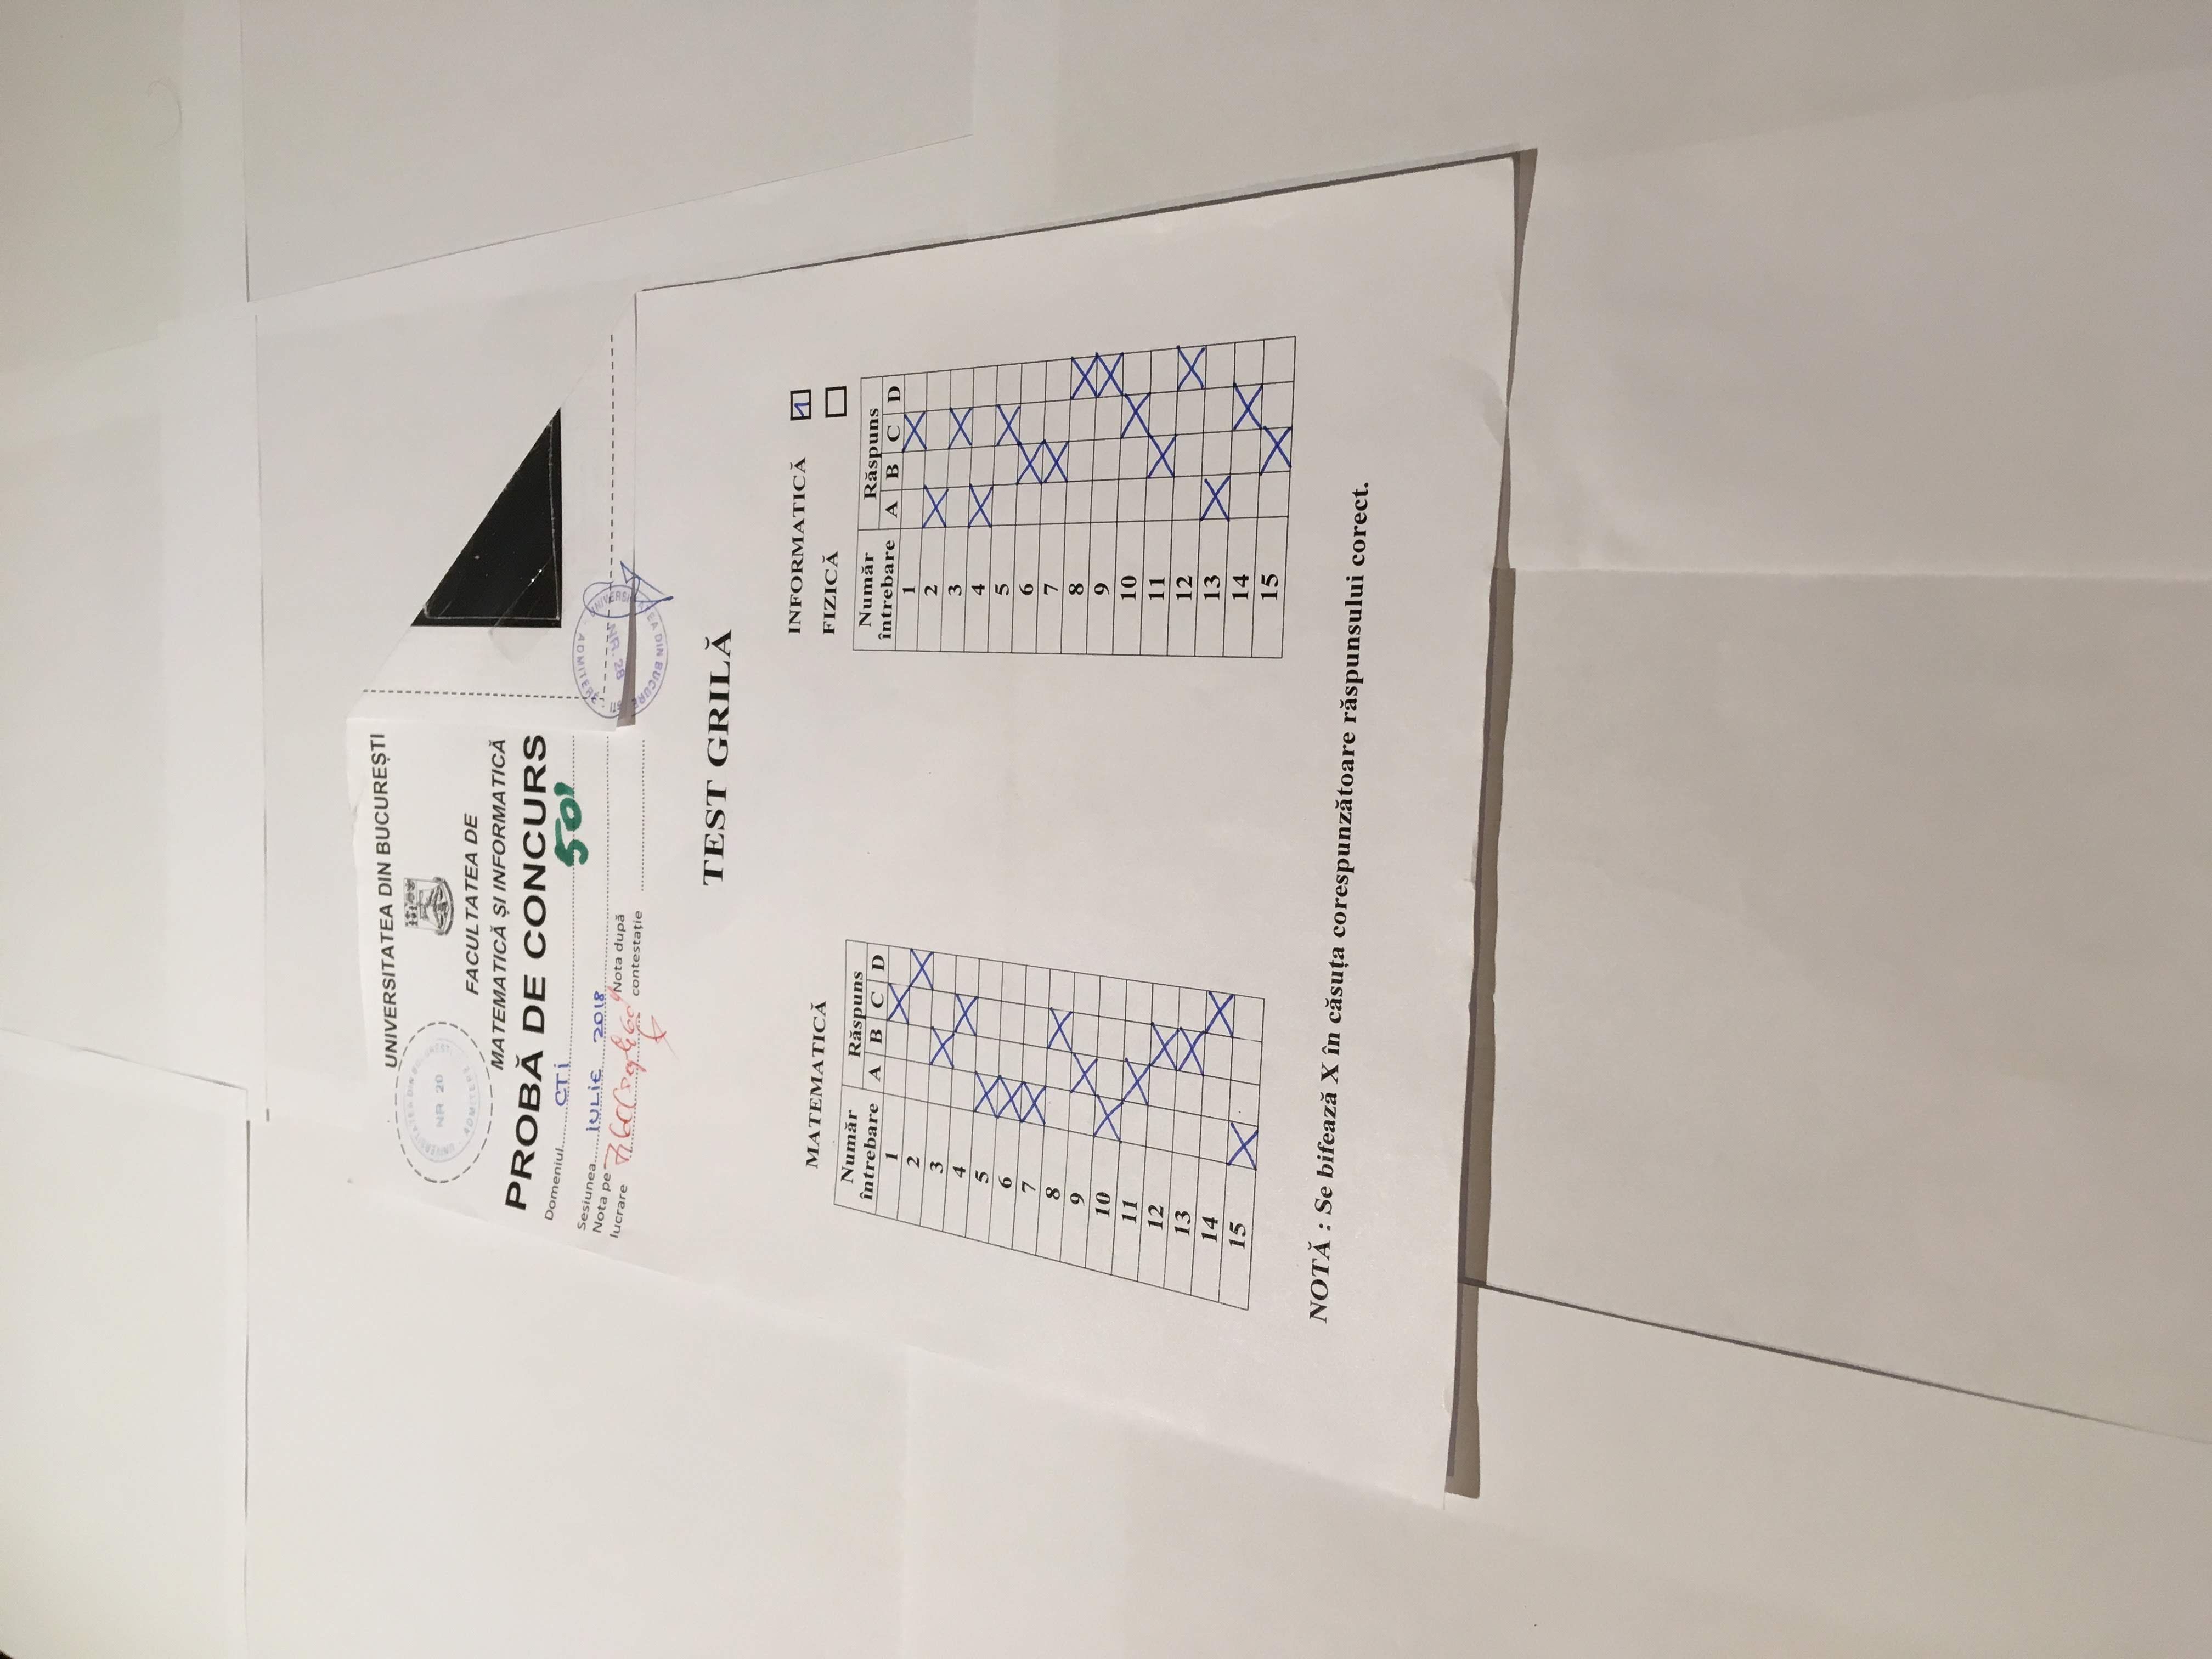 UNIVERSITATEA DIN BUCUREȘTI
UNIVERSITATEA DIN BUCUREȘTI
NR. 20
ADMITERE
FACULTATEA DE
MATEMATICĂ ȘI INFORMATICĂ
PROBĂ DE CONCURS
Domeniul CTi 501
Sesiunea IULIE 2018
Nota pe lucrare 7,60
Nota după contestație
UNIVERSITATEA DIN BUCUREȘTI
ADMITERE
NR. 28
TEST GRILĂ
MATEMATICĂ
Număr întrebare Răspuns
A B C D
1 X
2 X
3 X
4 X
5 X
6 X
7 X
8 X
9 X
10 X
11 X
12 X
13 X
14 X
15 X
INFORMATICĂ 1
FIZICĂ
Număr întrebare Răspuns
A B C D
1 X
2 X
3 X
4 X
5 X
6 X
7 X
8 X
9 X
10 X
11 X
12 X
13 X
14 X
15 X
NOTĂ : Se bifează X în căsuța corespunzătoare răspunsului corect.